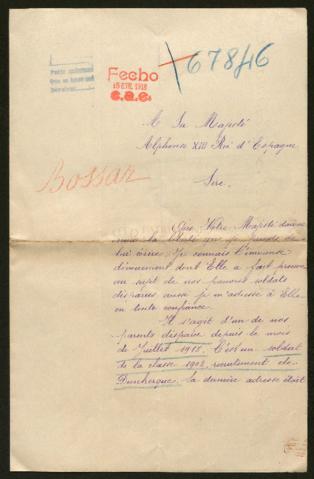 Fecho
15 ENE. 1918
e.a.e.
67846
Bossar
A Sa Majesté
Alphonse XIII Roi d'Espagne
Sire,
Que Votre Majesté daigne
la liberté que je prends de
lui écrire. Je connais l'immense
dévouement dont Elle a fait preuve
au sujet de nos pauvres soldats
disparus aussi je m'adresse à Elle
en toute confiance.
Il s'agit d'un de nos
parents disparu depuis le mois
de Juillet 1915. C'est un soldat
de la classe 1902, recrutement de
Dunkerque, la dernière adresse était